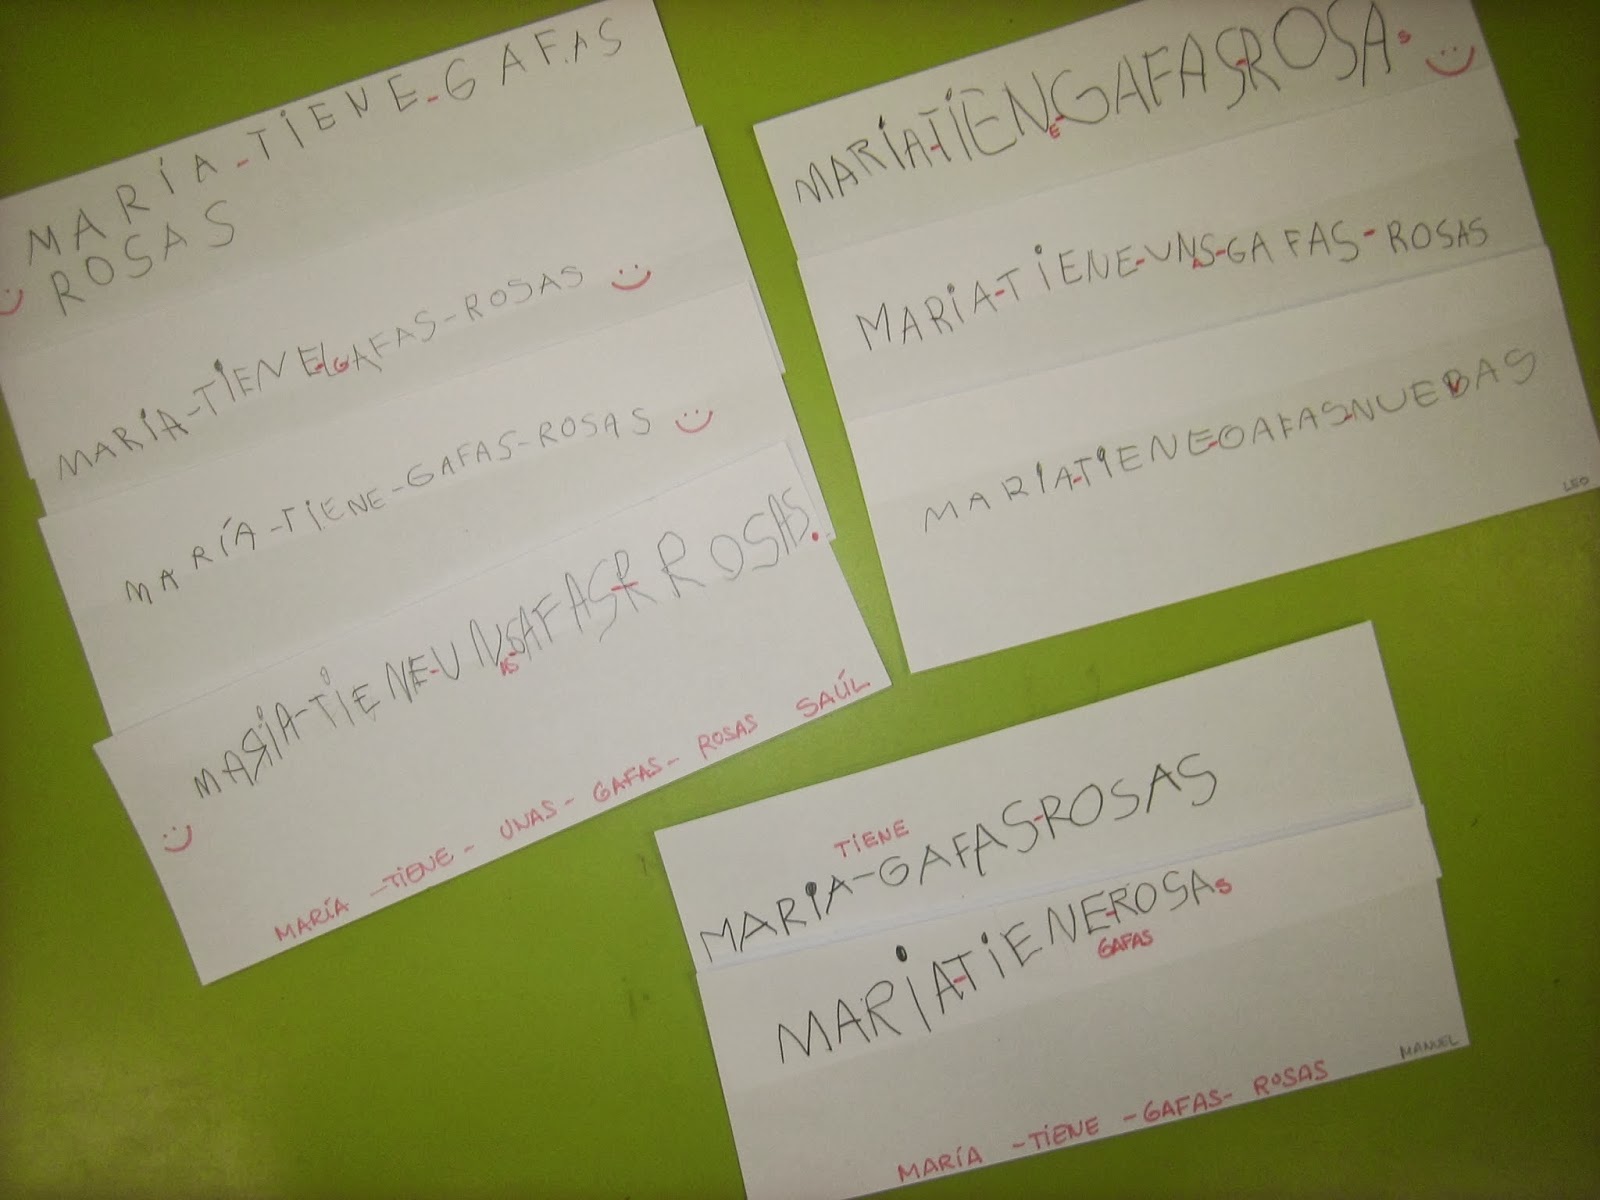 MARÍA-TIENE-GAFAS
ROSAS
MARIA-TIENE-GAFAS-ROSAS
MARÍA-TIENE-GAFAS-ROSAS
MARIA-TIENE-UNASGAFAS-RROSAS.
MARÍA -TIENE- UNAS- GAFAS- ROSAS SAÚL
MARIA-TIENE-GAFAS-ROSAS
MARIA-TIENE-UNAS-GAFAS-ROSAS
MARIA-TIENE-GAFAS-NUEBAS
LEO
TIENE
MARIA-GAFAS-ROSAS
MARIA-TIENE-ROSAS
GAFAS
MANUEL
MARÍA -TIENE -GAFAS- ROSAS